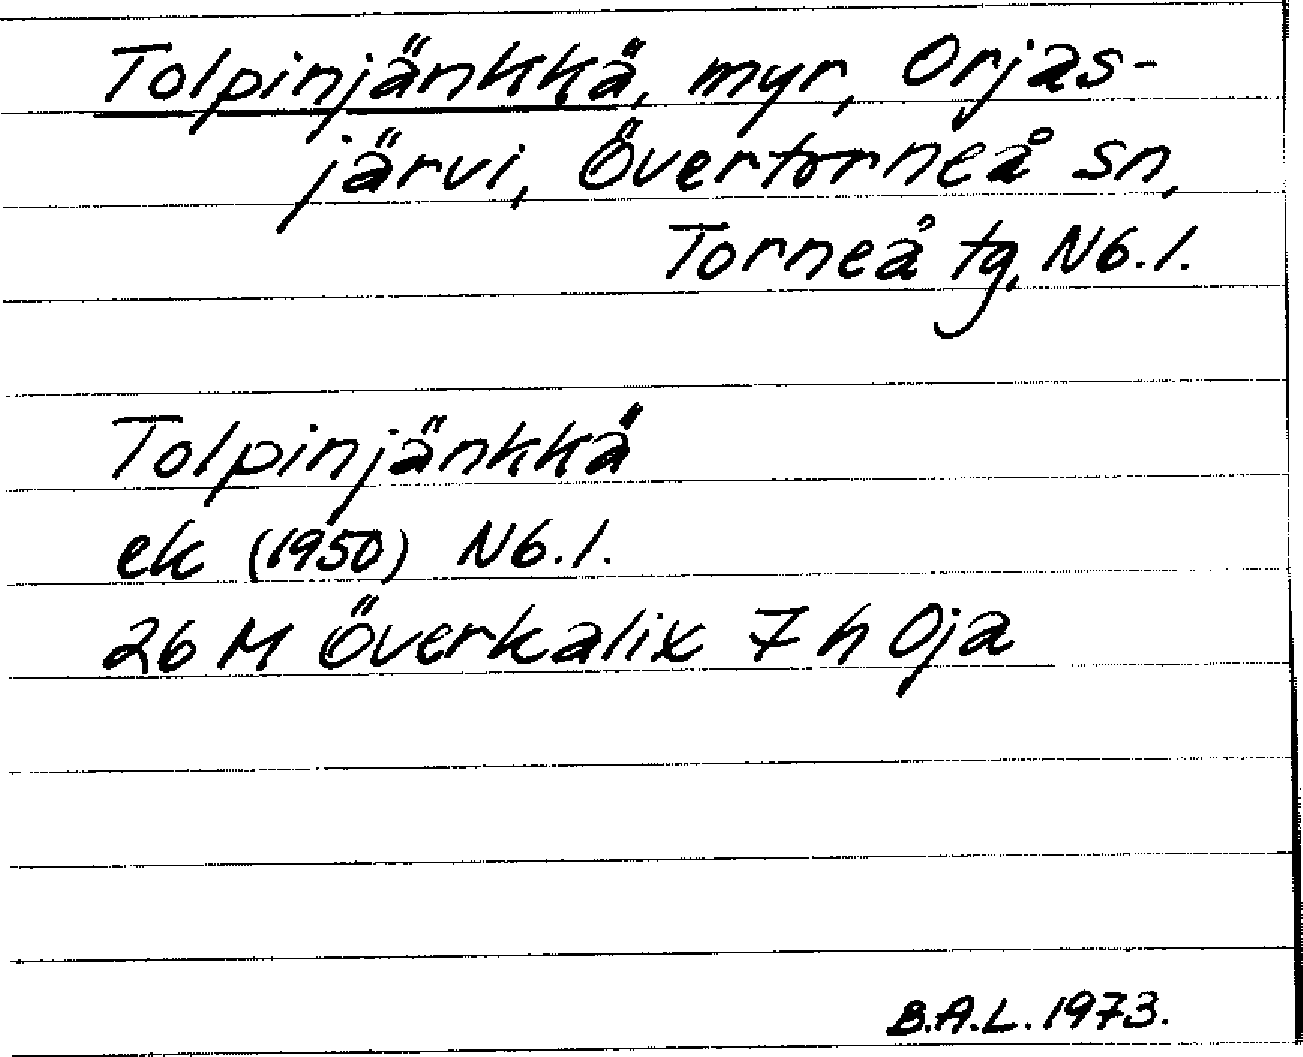 Tolpinjänkkä, myr, Orjas-
järvi, Övertorneå sn,
Torneå tg, N6.1.
Tolpinjänkkä
ek (1950) N6.1.
26 M Överkalix 7 h Oja
B.A.L. 1973.